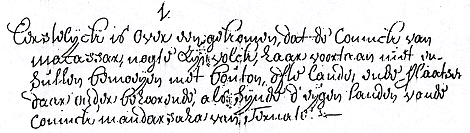 1.
Eerstelijck is over een gekomen, dat de Coninck van
macassar, nogte sijn volck, haar voortaan niet en
sullen bemoeijen met bouton, ofte landen, ende plaatsen
daar onder behoorende, als sijnde d'eijgen landen van de
Coninck mandarsaha van, Ternate